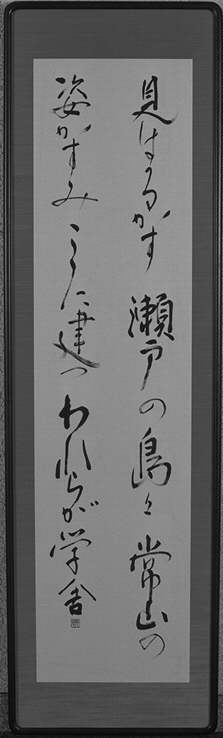 見はるかす瀬戸の島々常山の
姿かすみここに建つわれらが学舎